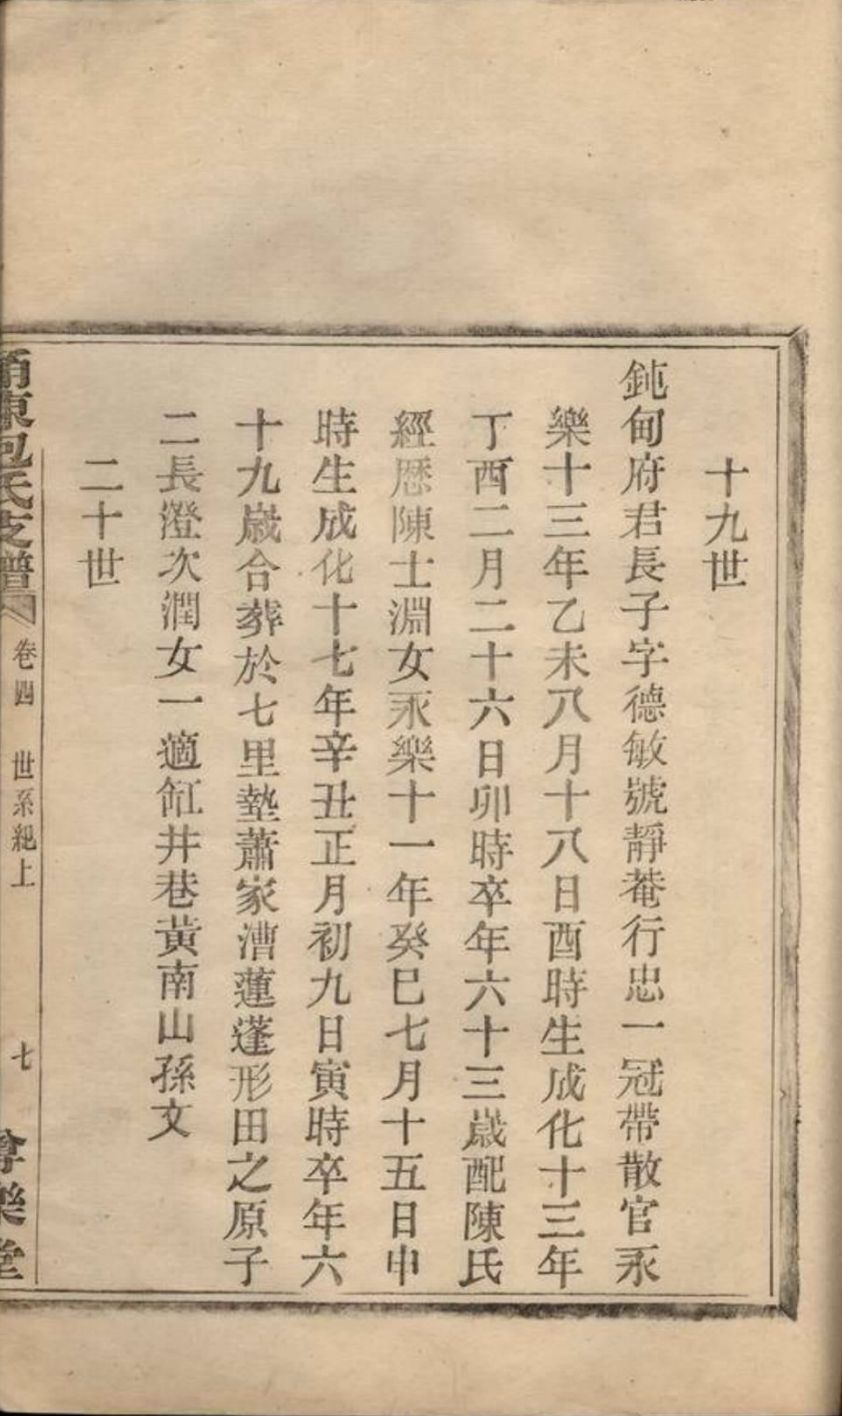 十九世
鈍甸府君長子字德敏號靜菴行忠一冠帶散官永
樂十三年乙未八月十八日酉時生成化十三年
丁酉二月二十六日卯時卒年六十三歲配陳氏
經歷陳士淵女永樂十一年癸巳七月十五日申
時生成化十七年辛丑正月初九日寅時卒年六
十九歲合葬於七里墊蕭家漕蓮蓬形田之原子
二長澄次潤女一適缸井巷黃南山孫文
二十世
甬東包氏支譜 卷四 世系紀上 七 樂堂